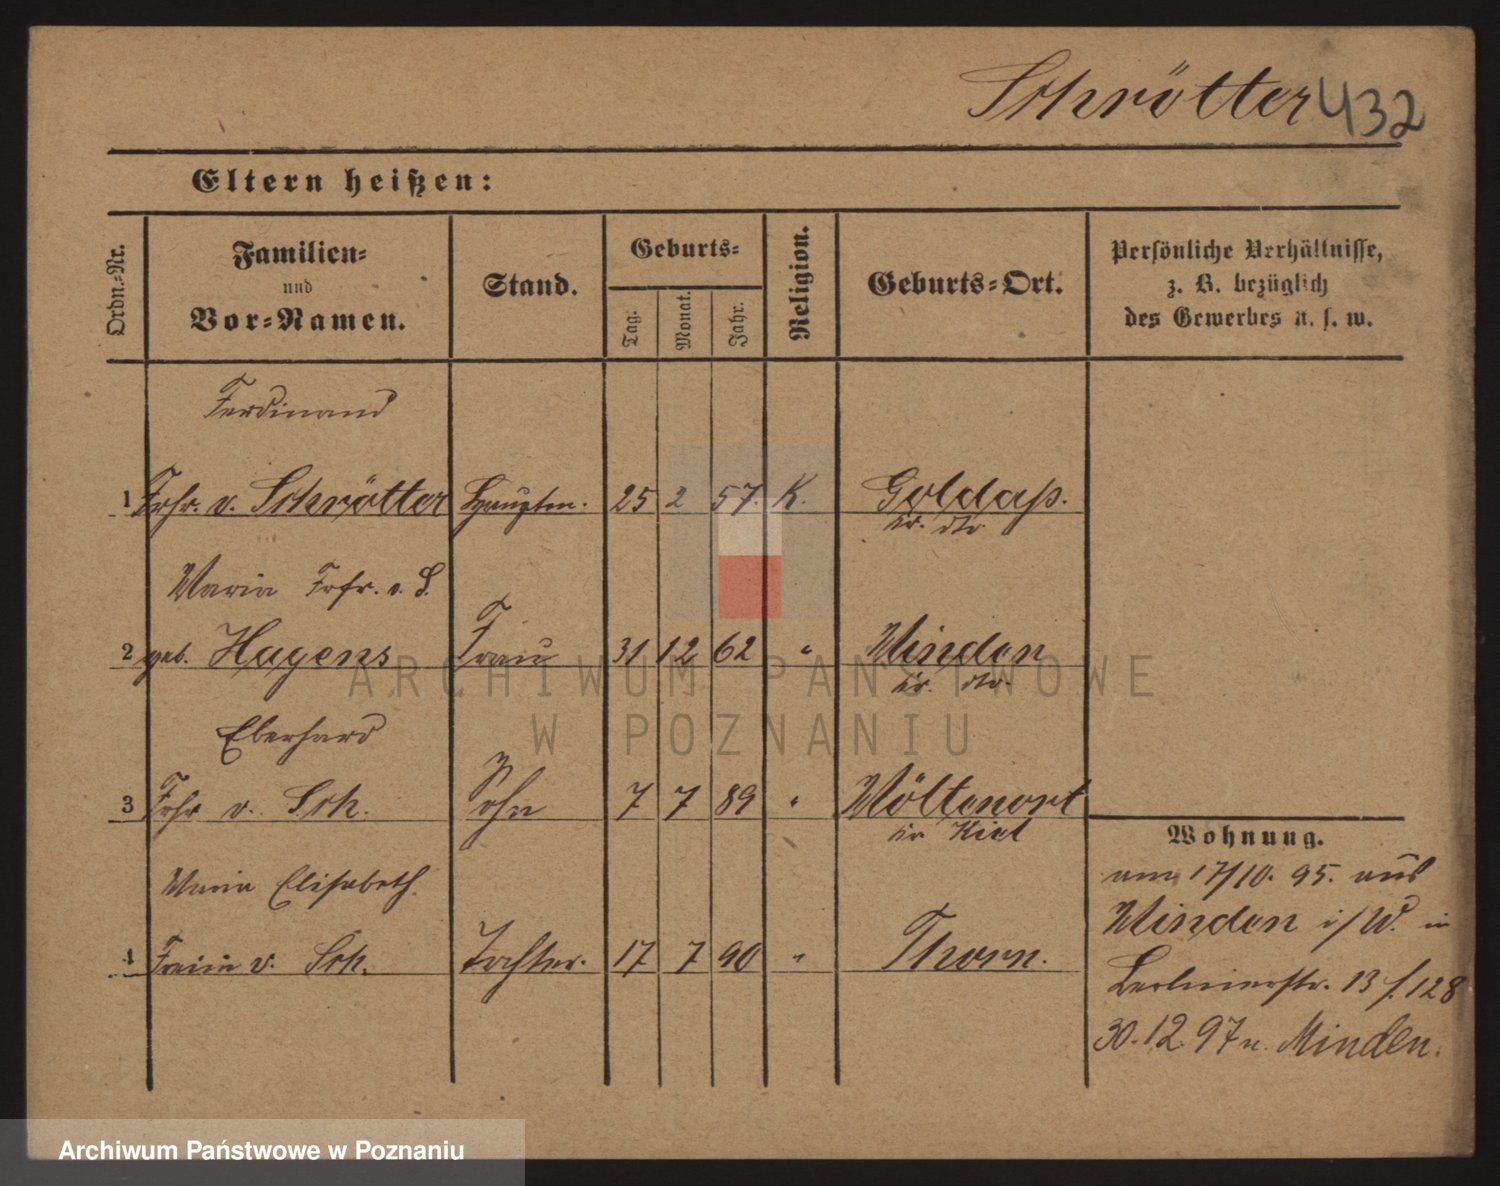 Schrötter 432
Eltern heißen:
Ordn.-Nr.
Familien-
und
Vor-Namen.
Stand.
Geburts-
Tag.
Monat.
Jahr.
Religion.
Geburts-Ort.
Persönliche Verhältnisse,
z. B. bezüglich
des Gewerbes u. s. w.
Ferdinand
1 Frhr. v. Schrötter Hauptm. 25 2 57. K. Goldap.
Kr. dto
Maria Frfr. v. S.
2 geb. Hagens Frau 31 12 62 " Minden
Kr. dto.
Eberhard
3 Frhr v. Sch. Sohn 7 7 89 " Möltenort
Kr Kiel
Maria Elisabeth.
4 Freiin v. Sch. Tochter. 17 7 90 " Thorn.
Wohnung.
am 17/10. 95. aus
Minden i/W. in
Berlinerstr. 13 f. 128
30.12.97 n. Minden.
ARCHIWUM PAŃSTWOWE
W POZNANIU
Archiwum Państwowe w Poznaniu